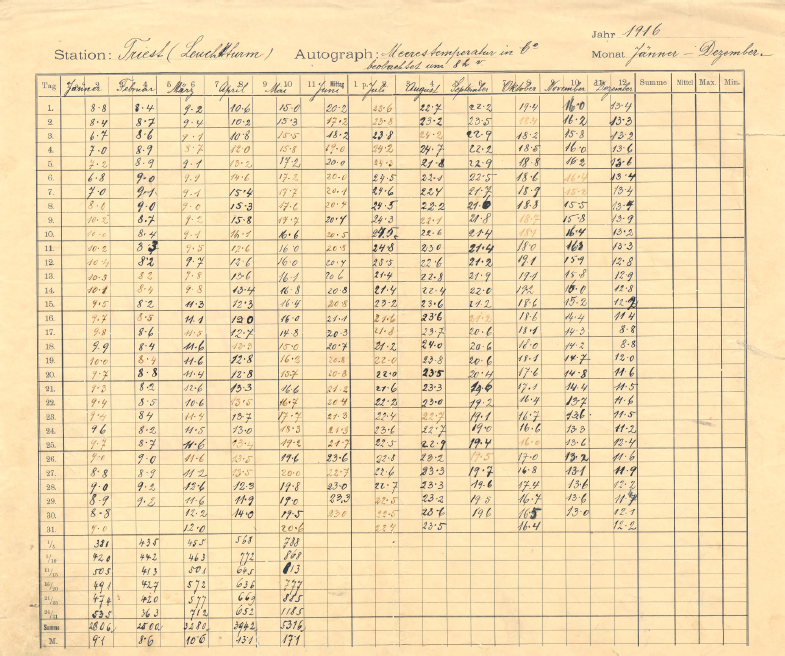 Jahr 1916
Station: Triest (Leuchtturm) Autograph: Meerestemperatur in C°
Monat Jänner – Dezember
beobachtet um 8h
Tag Jänner Februar März April Mai Juni Juli August September Oktober November Dezember Summe Mittel Max. Min.
1. 8.8 8.4 9.2 10.6 15.0 20.2 22.7 22.2 19.4 16.0 13.4
2. 8.4 8.7 9.4 10.2 15.3 17.2 23.2 23.5 16.2 13.3
3. 6.7 8.6 9.1 10.8 15.5 18.2 23.8 24.2 22.9 18.2 15.8 13.2
4. 7.0 8.9 12.0 15.8 19.0 24.2 24.7 22.2 18.5 16.0 13.6
5. 7.2 8.9 9.1 13.2 17.2 20.0 24.3 21.8 22.9 18.8 16.2 13.6
6. 6.8 9.0 9.1 14.6 17.2 20.0 24.5 22.1 22.5 18.6 16.4 13.4
7. 7.0 9.1 9.1 15.4 17.7 20.1 24.6 22.4 21.7 18.9 13.4
8. 8.6 9.0 9.0 15.3 17.6 20.4 24.5 22.2 21.6 18.3 15.5 13.4
9. 10.2 8.7 9.2 15.8 20.4 24.3 22.1 21.8 18.7 15.8 13.9
10. 10.0 8.4 9.1 16.1 16.6 20.5 22.6 21.4 16.4 13.2
11. 10.2 9.5 17.6 16.0 20.3 24.8 23.0 21.4 18.0 13.3
12. 8.2 9.7 12.6 16.0 20.7 22.6 21.2 19.1 15.9 12.8
13. 10.3 8.2 9.8 13.6 16.1 20.6 21.4 22.8 21.9 19.1 15.8 12.9
14. 10.1 8.4 9.8 13.4 16.8 20.8 21.4 22.4 22.0 19.2 12.8
15. 9.5 8.2 11.3 12.3 16.4 20.8 23.2 23.6 21.2 18.6 15.2 12.9
16. 9.7 8.5 11.1 12.0 16.0 21.1 21.6 23.6 21.2 18.6 14.4 11.4
17. 9.8 8.6 11.5 12.7 14.8 20.3 21.8 23.7 20.6 18.1 14.3 8.8
18. 9.9 8.4 11.6 15.0 20.7 21.2 24.0 20.6 18.0 14.2 8.8
19. 10.0 8.4 11.6 12.8 16.2 20.8 22.0 23.8 20.6 18.1 14.7 12.0
20. 9.7 8.8 11.4 12.8 20.8 22.0 23.5 20.4 17.6 14.8 11.6
21. 9.2 8.2 12.6 13.3 16.6 21.2 21.6 23.3 17.1 14.4 11.5
22. 9.4 8.5 10.6 13.5 16.7 20.4 22.2 23.0 19.2 16.4 13.7 11.6
23. 9.4 8.4 11.4 13.7 17.7 21.3 22.4 22.7 19.1 16.7 13.6 11.5
24. 9.6 8.2 11.5 13.0 18.3 21.3 23.6 22.7 19.0 16.6 13.3 11.2
25. 9.7 8.7 11.6 13.4 19.2 21.7 22.5 22.9 19.4 16.0 13.6 12.4
26. 9.0 9.0 11.6 13.5 19.6 23.6 22.8 23.2 19.5 17.0 13.2 11.6
27. 8.8 8.9 11.2 13.5 20.0 22.7 22.6 23.3 19.7 16.8 13.1 11.9
28. 9.0 9.2 12.6 12.3 19.8 23.0 22.7 23.3 19.6 17.4 13.6 12.2
29. 8.9 9.2 11.6 11.9 19.0 23.3 22.5 23.2 19.5 16.7 13.6
30. 8.8 12.2 14.0 19.5 23.0 22.5 23.6 19.6 16.5 13.0 12.1
31. 9.0 12.0 20.6 22.4 23.5 16.4 12.2
1/5 381 435 455 568 788
6/10 420 442 463 772 868
11/15 503 413 501 645 813
16/20 491 427 572 636 777
21/25 474 420 577 669 885
26/31 535 363 712 652 1185
Summe 2806 2500 3280 3942 5316
M. 9.1 8.6 10.6 13.1 17.1